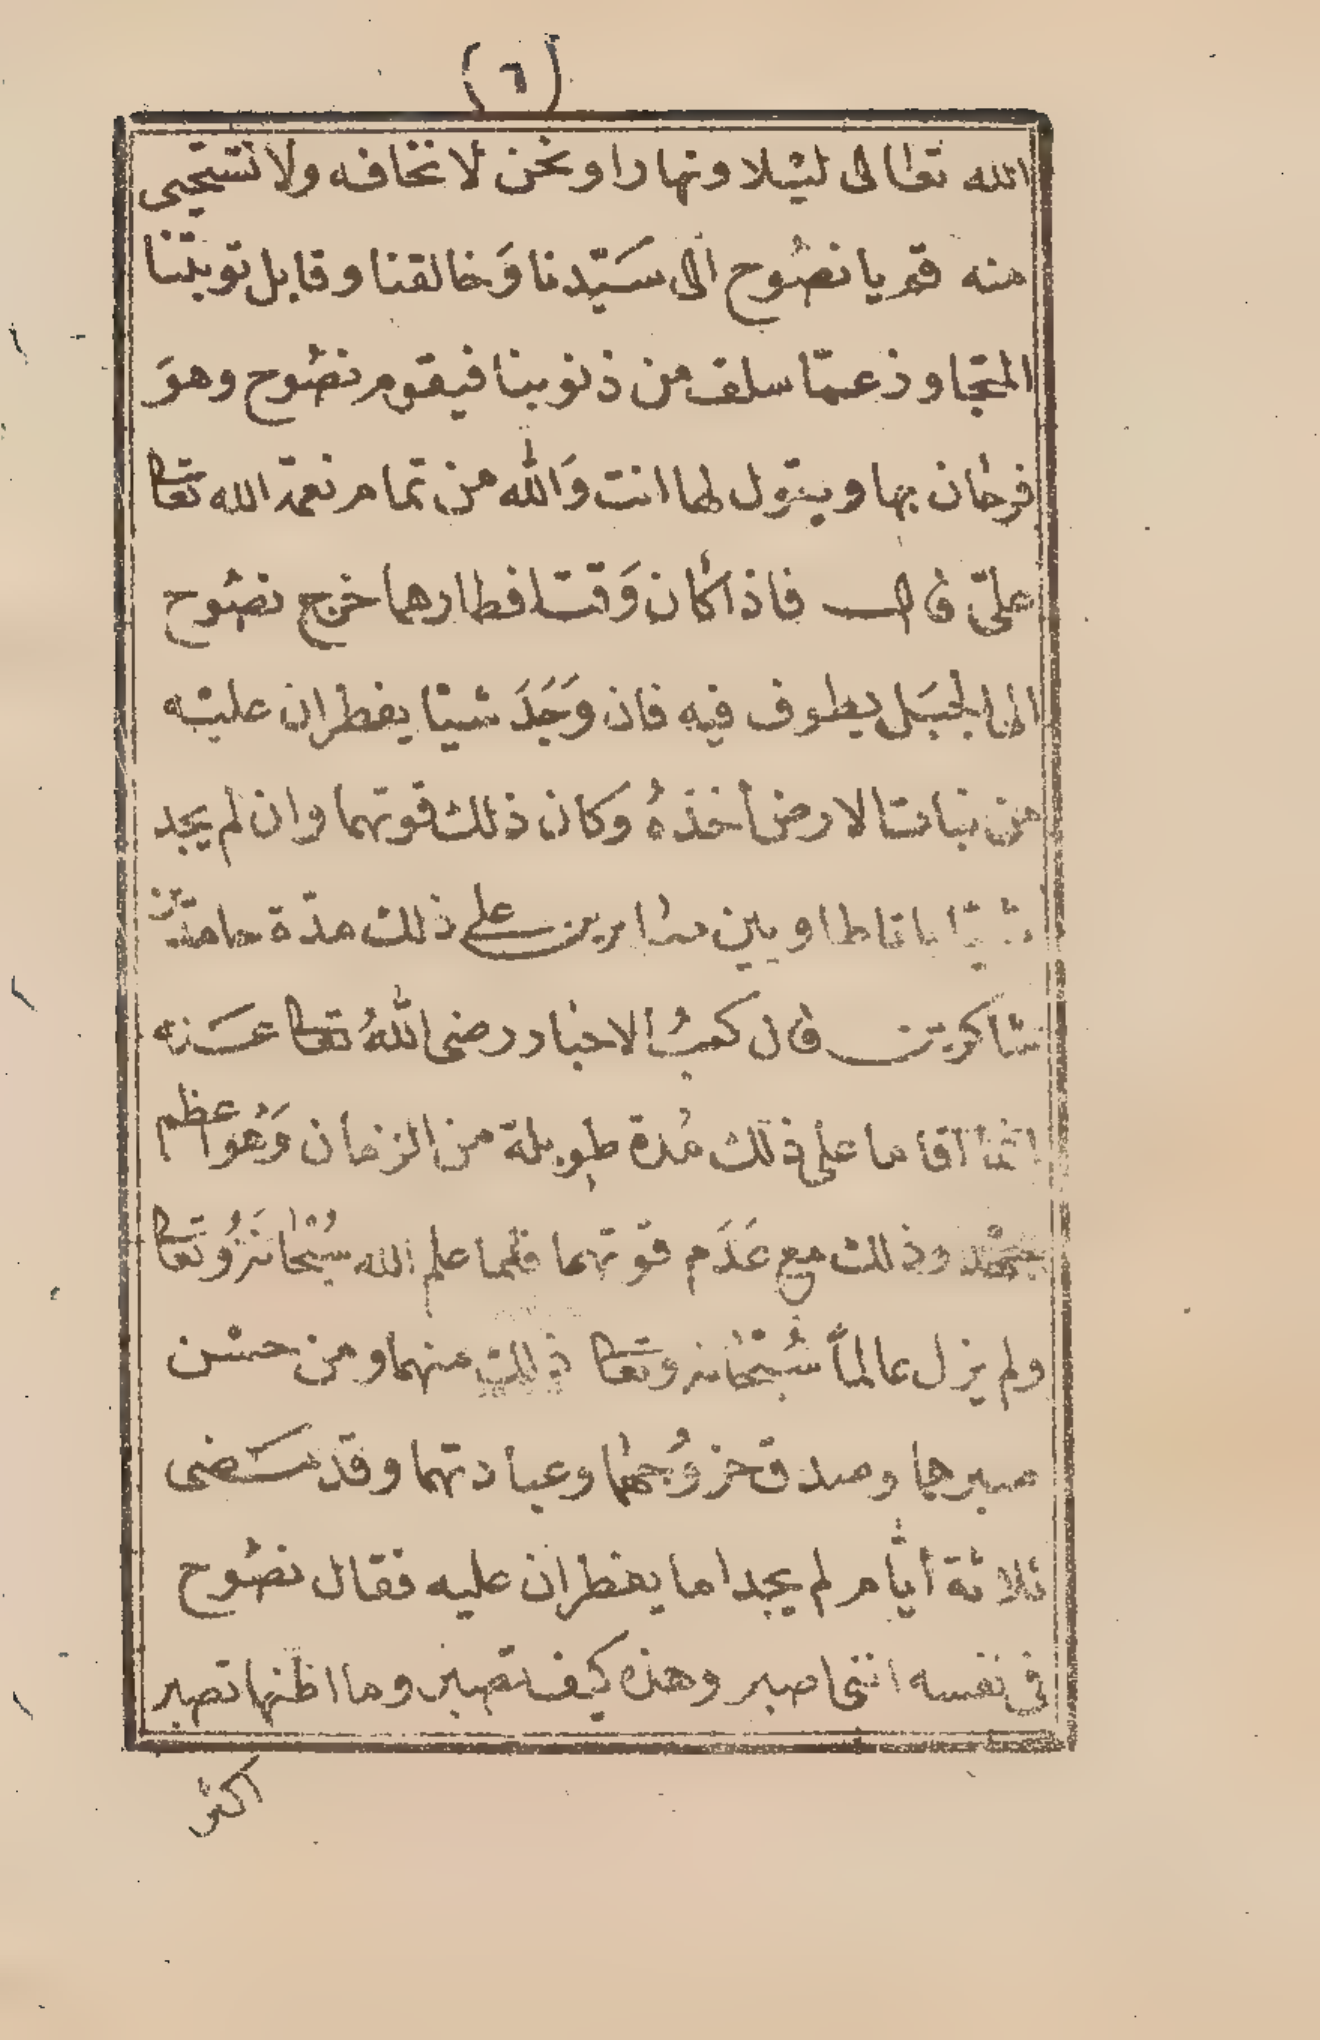 (٦)
الله تعالى ليلا ونهارا ونحن لا نخافه ولا نستحيى
منه قم يا نصُوح الى سَيّدنا وَخالقنا وقابل توبتنا
المتجاوز عمّا سلف من ذنوبنا فيقوم نصُوح وهوَ
فرحان بها ويقول لها انت وَالله من تمام نعمة الله تعالى
عليّ قال فاذا كان وَقت افطارهما خرج نصُوح
الى الجبَل يطوف فيه فان وَجَدَ شيئا يفطران عليه
من نبات الارض أخذهُ وَكان ذلك قوتهما وان لم يجد
شيئا باتا طاويين صابرين على ذلك مدّة حامدين
شاكرين قال كعبُ الاحبار رضى اللهُ تعالى عَنه
انما اقاما على ذلك مُدة طويلة من الزمان وَهُو اعظم
جهد وذلك مع عَدَم قوتهما فلما علم الله سُبْحانَهُ وتعالى
ولم يزل عالماً سُبْحانه وتعالى ذلك منهما ومن حسْن
صبرهما وصدق خروُجهما وعبادتهما وقد مَضى
ثلاثة أيّام لم يجدا ما يفطران عليه فقال نصُوح
فى نفسه اننى اصبر وهذه كيف تصبر وما اظنها تصبر
اكثر